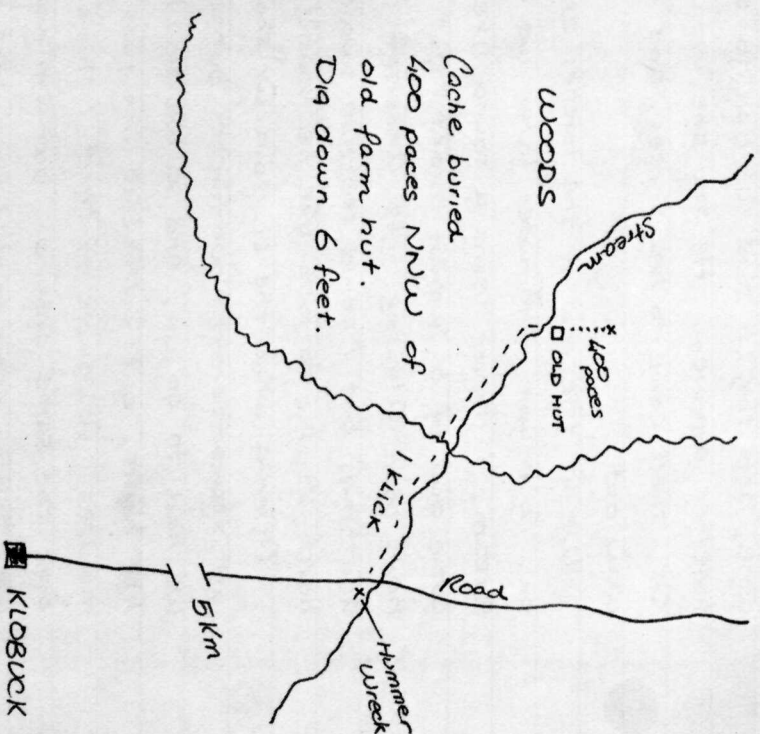 WOODS
Cache buried
400 paces NNW of
old farm hut.
Dig down 6 feet.
Stream
400
paces
OLD HUT
1 KLICK
Road
Hummer
Wreck
5 Km
KLOBUCK